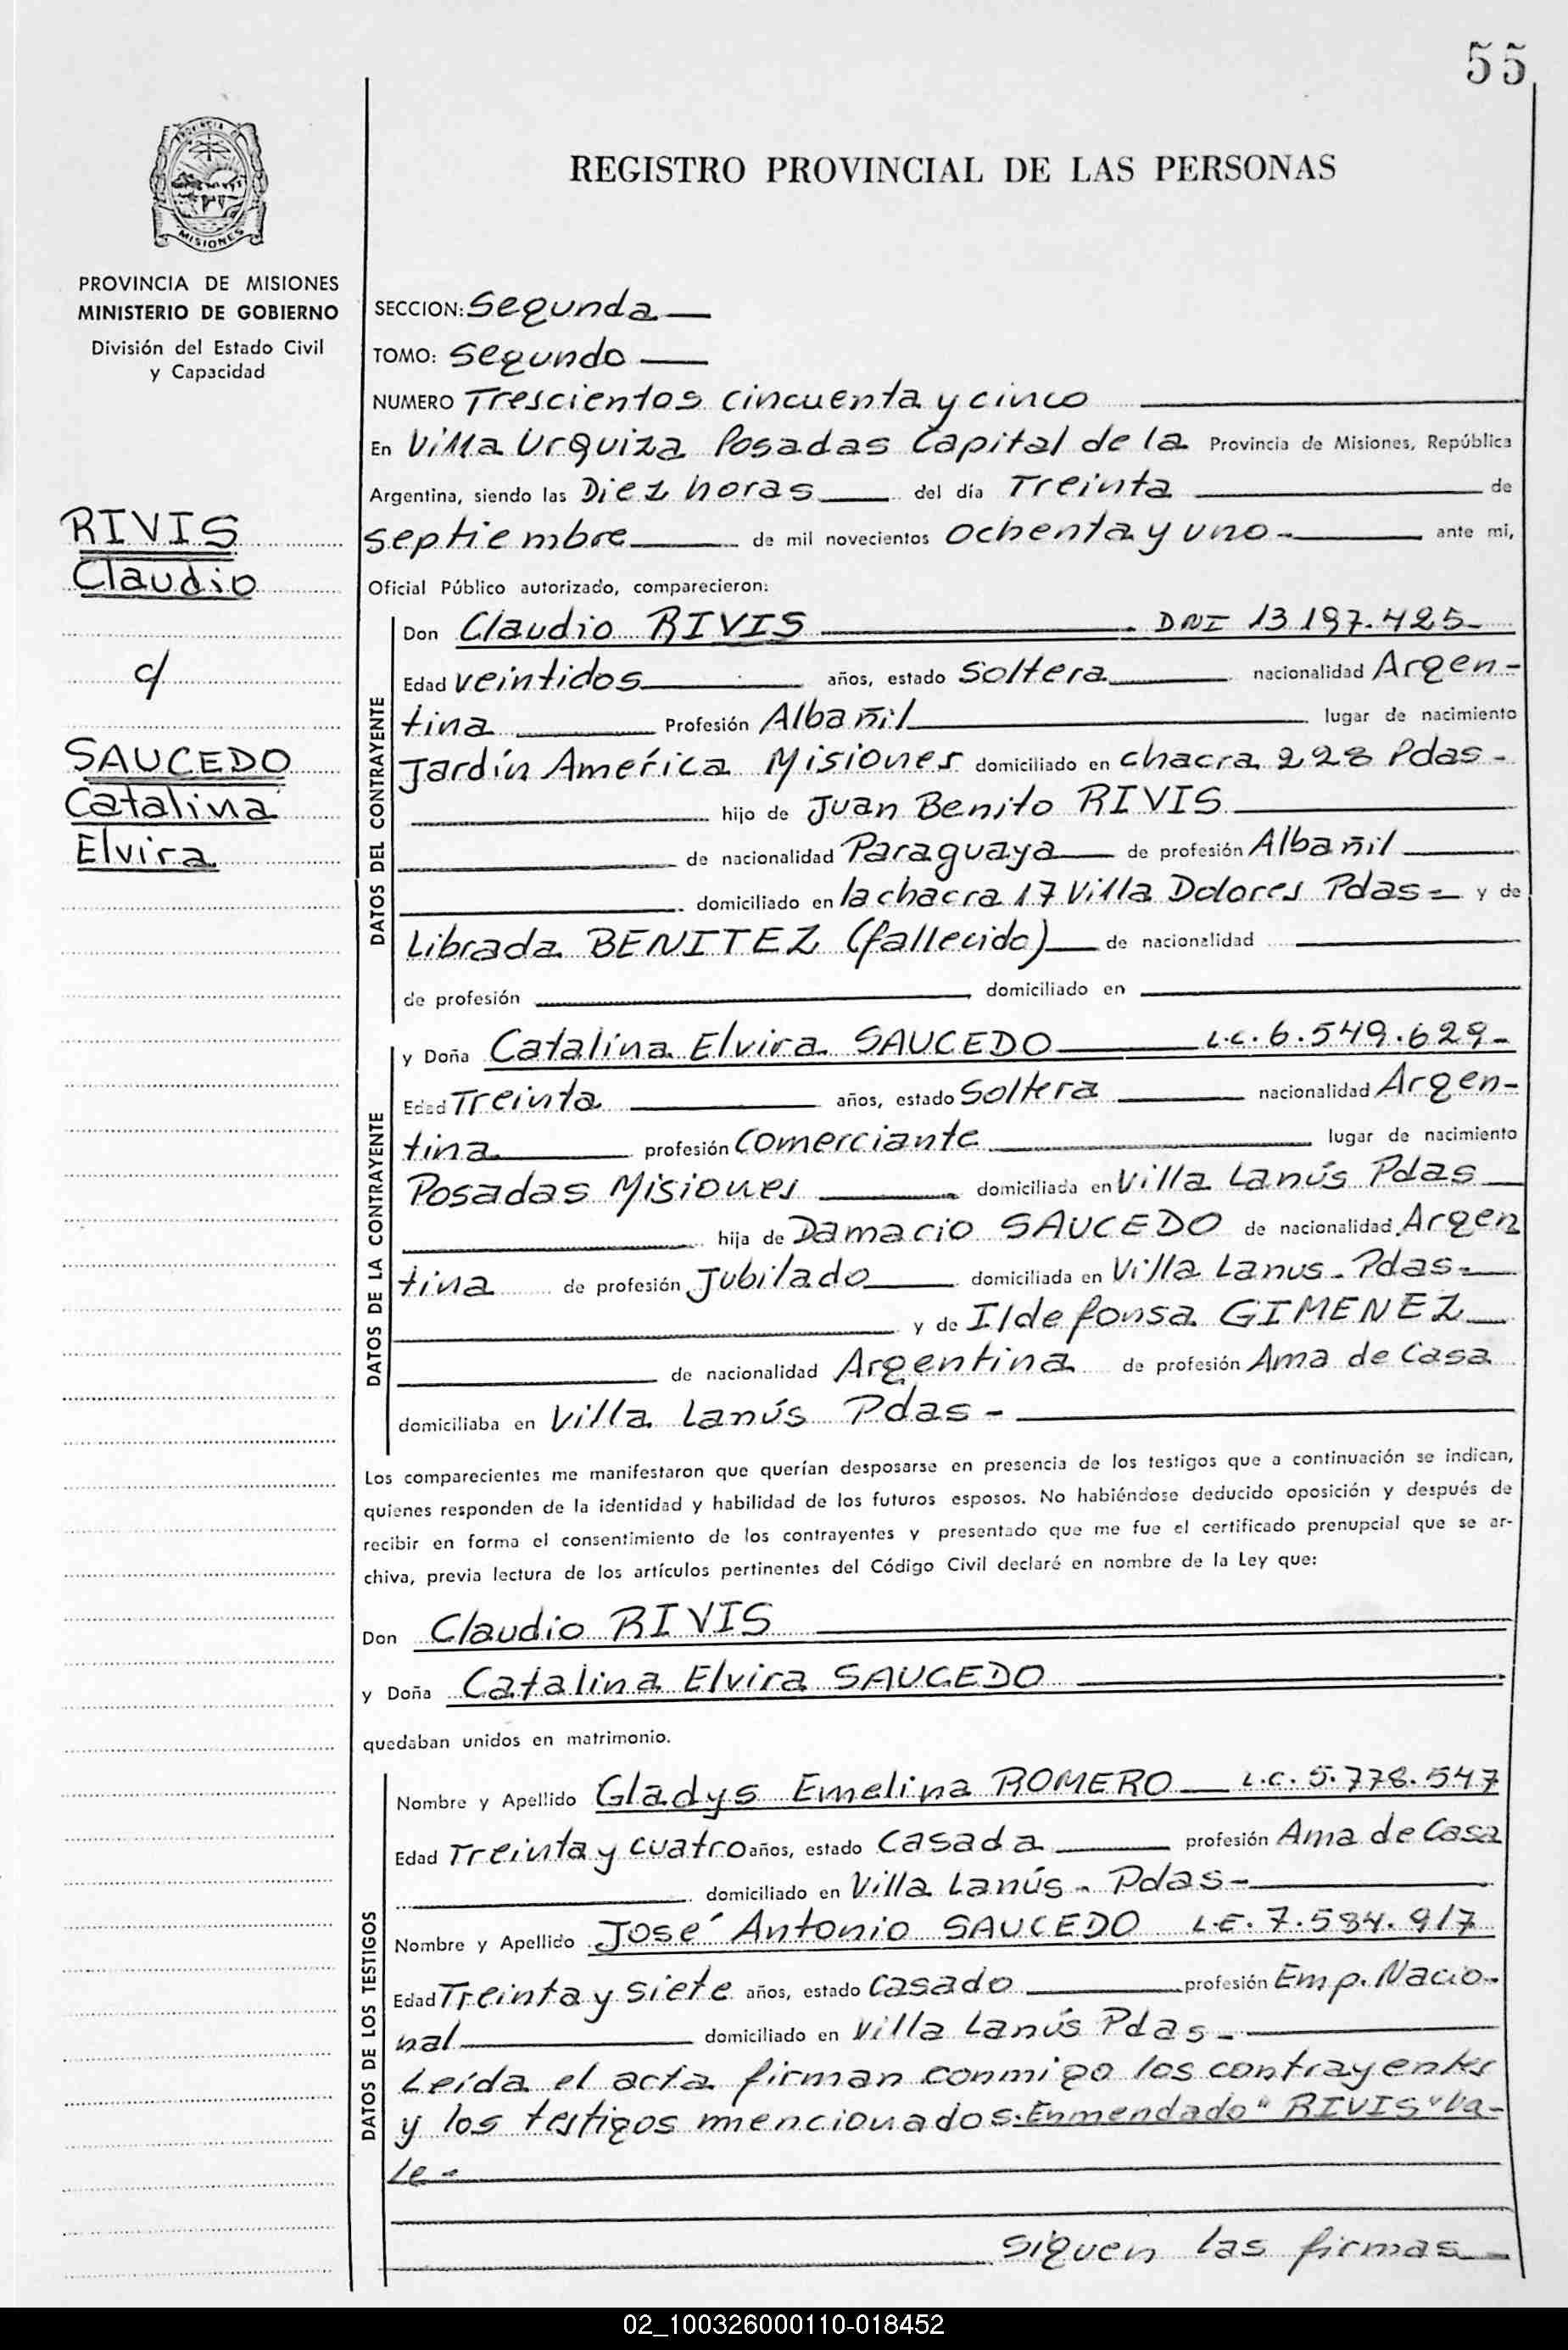 55
PROVINCIA DE MISIONES
MINISTERIO DE GOBIERNO
División del Estado Civil
y Capacidad
RIVIS
Claudio
c/
SAUCEDO
Catalina
Elvira
REGISTRO PROVINCIAL DE LAS PERSONAS
SECCION: Segunda
TOMO: Segundo
NUMERO Trescientos cincuenta y cinco
En Villa Urquiza Posadas Capital de la Provincia de Misiones, República
Argentina, siendo las Diez horas del día Treinta de
septiembre de mil novecientos ochenta y uno - ante mi,
Oficial Público autorizado, comparecieron:
DATOS DEL CONTRAYENTE
Don Claudio RIVIS DNI 13.197.425-
Edad veintidos años, estado Soltera nacionalidad Argen-
tina Profesión Albañil lugar de nacimiento
Jardín América Misiones domiciliado en chacra 228 Pdas -
hijo de Juan Benito RIVIS
de nacionalidad Paraguaya de profesión Albañil
domiciliado en la chacra 17 Villa Dolores Pdas = y de
Librada BENITEZ (fallecido) de nacionalidad
de profesión domiciliado en
DATOS DE LA CONTRAYENTE
y Doña Catalina Elvira SAUCEDO L.C. 6.549.629-
Edad Treinta años, estado Soltera nacionalidad Argen-
tina profesión Comerciante lugar de nacimiento
Posadas Misiones domiciliada en Villa Lanús Pdas
hija de Damacio SAUCEDO de nacionalidad Argen
tina de profesión Jubilado domiciliada en Villa Lanus - Pdas.
y de Ildefonsa GIMENEZ
de nacionalidad Argentina de profesión Ama de Casa
domiciliaba en Villa Lanús Pdas -
Los comparecientes me manifestaron que querían desposarse en presencia de los testigos que a continuación se indican,
quienes responden de la identidad y habilidad de los futuros esposos. No habiéndose deducido oposición y después de
recibir en forma el consentimiento de los contrayentes y presentado que me fue el certificado prenupcial que se ar-
chiva, previa lectura de los artículos pertinentes del Código Civil declaré en nombre de la Ley que:
Don Claudio RIVIS
y Doña Catalina Elvira SAUCEDO
quedaban unidos en matrimonio.
DATOS DE LOS TESTIGOS
Nombre y Apellido Gladys Emelina ROMERO L.C. 5.778.547
Edad Treinta y cuatro años, estado Casada profesión Ama de Casa
domiciliado en Villa Lanús - Pdas -
Nombre y Apellido José Antonio SAUCEDO L.E. 7.584.917
Edad Treinta y siete años, estado Casado profesión Emp. Nacio-
nal domiciliado en Villa Lanús Pdas -
Leída el acta firman conmigo los contrayentes
y los testigos mencionados. Enmendado "RIVIS" Va-
le -
siguen las firmas
02_100326000110-018452